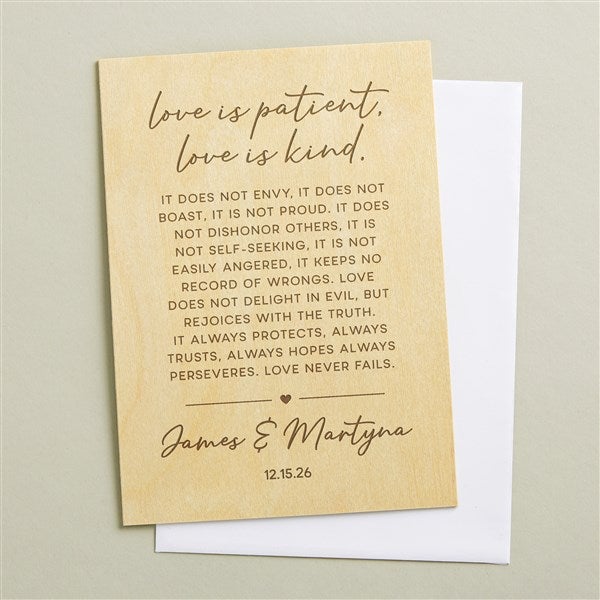 love is patient,
love is kind.
IT DOES NOT ENVY, IT DOES NOT
BOAST, IT IS NOT PROUD. IT DOES
NOT DISHONOR OTHERS, IT IS
NOT SELF-SEEKING, IT IS NOT
EASILY ANGERED, IT KEEPS NO
RECORD OF WRONGS. LOVE
DOES NOT DELIGHT IN EVIL, BUT
REJOICES WITH THE TRUTH.
IT ALWAYS PROTECTS, ALWAYS
TRUSTS, ALWAYS HOPES ALWAYS
PERSEVERES. LOVE NEVER FAILS.
James & Martyna
12.15.26